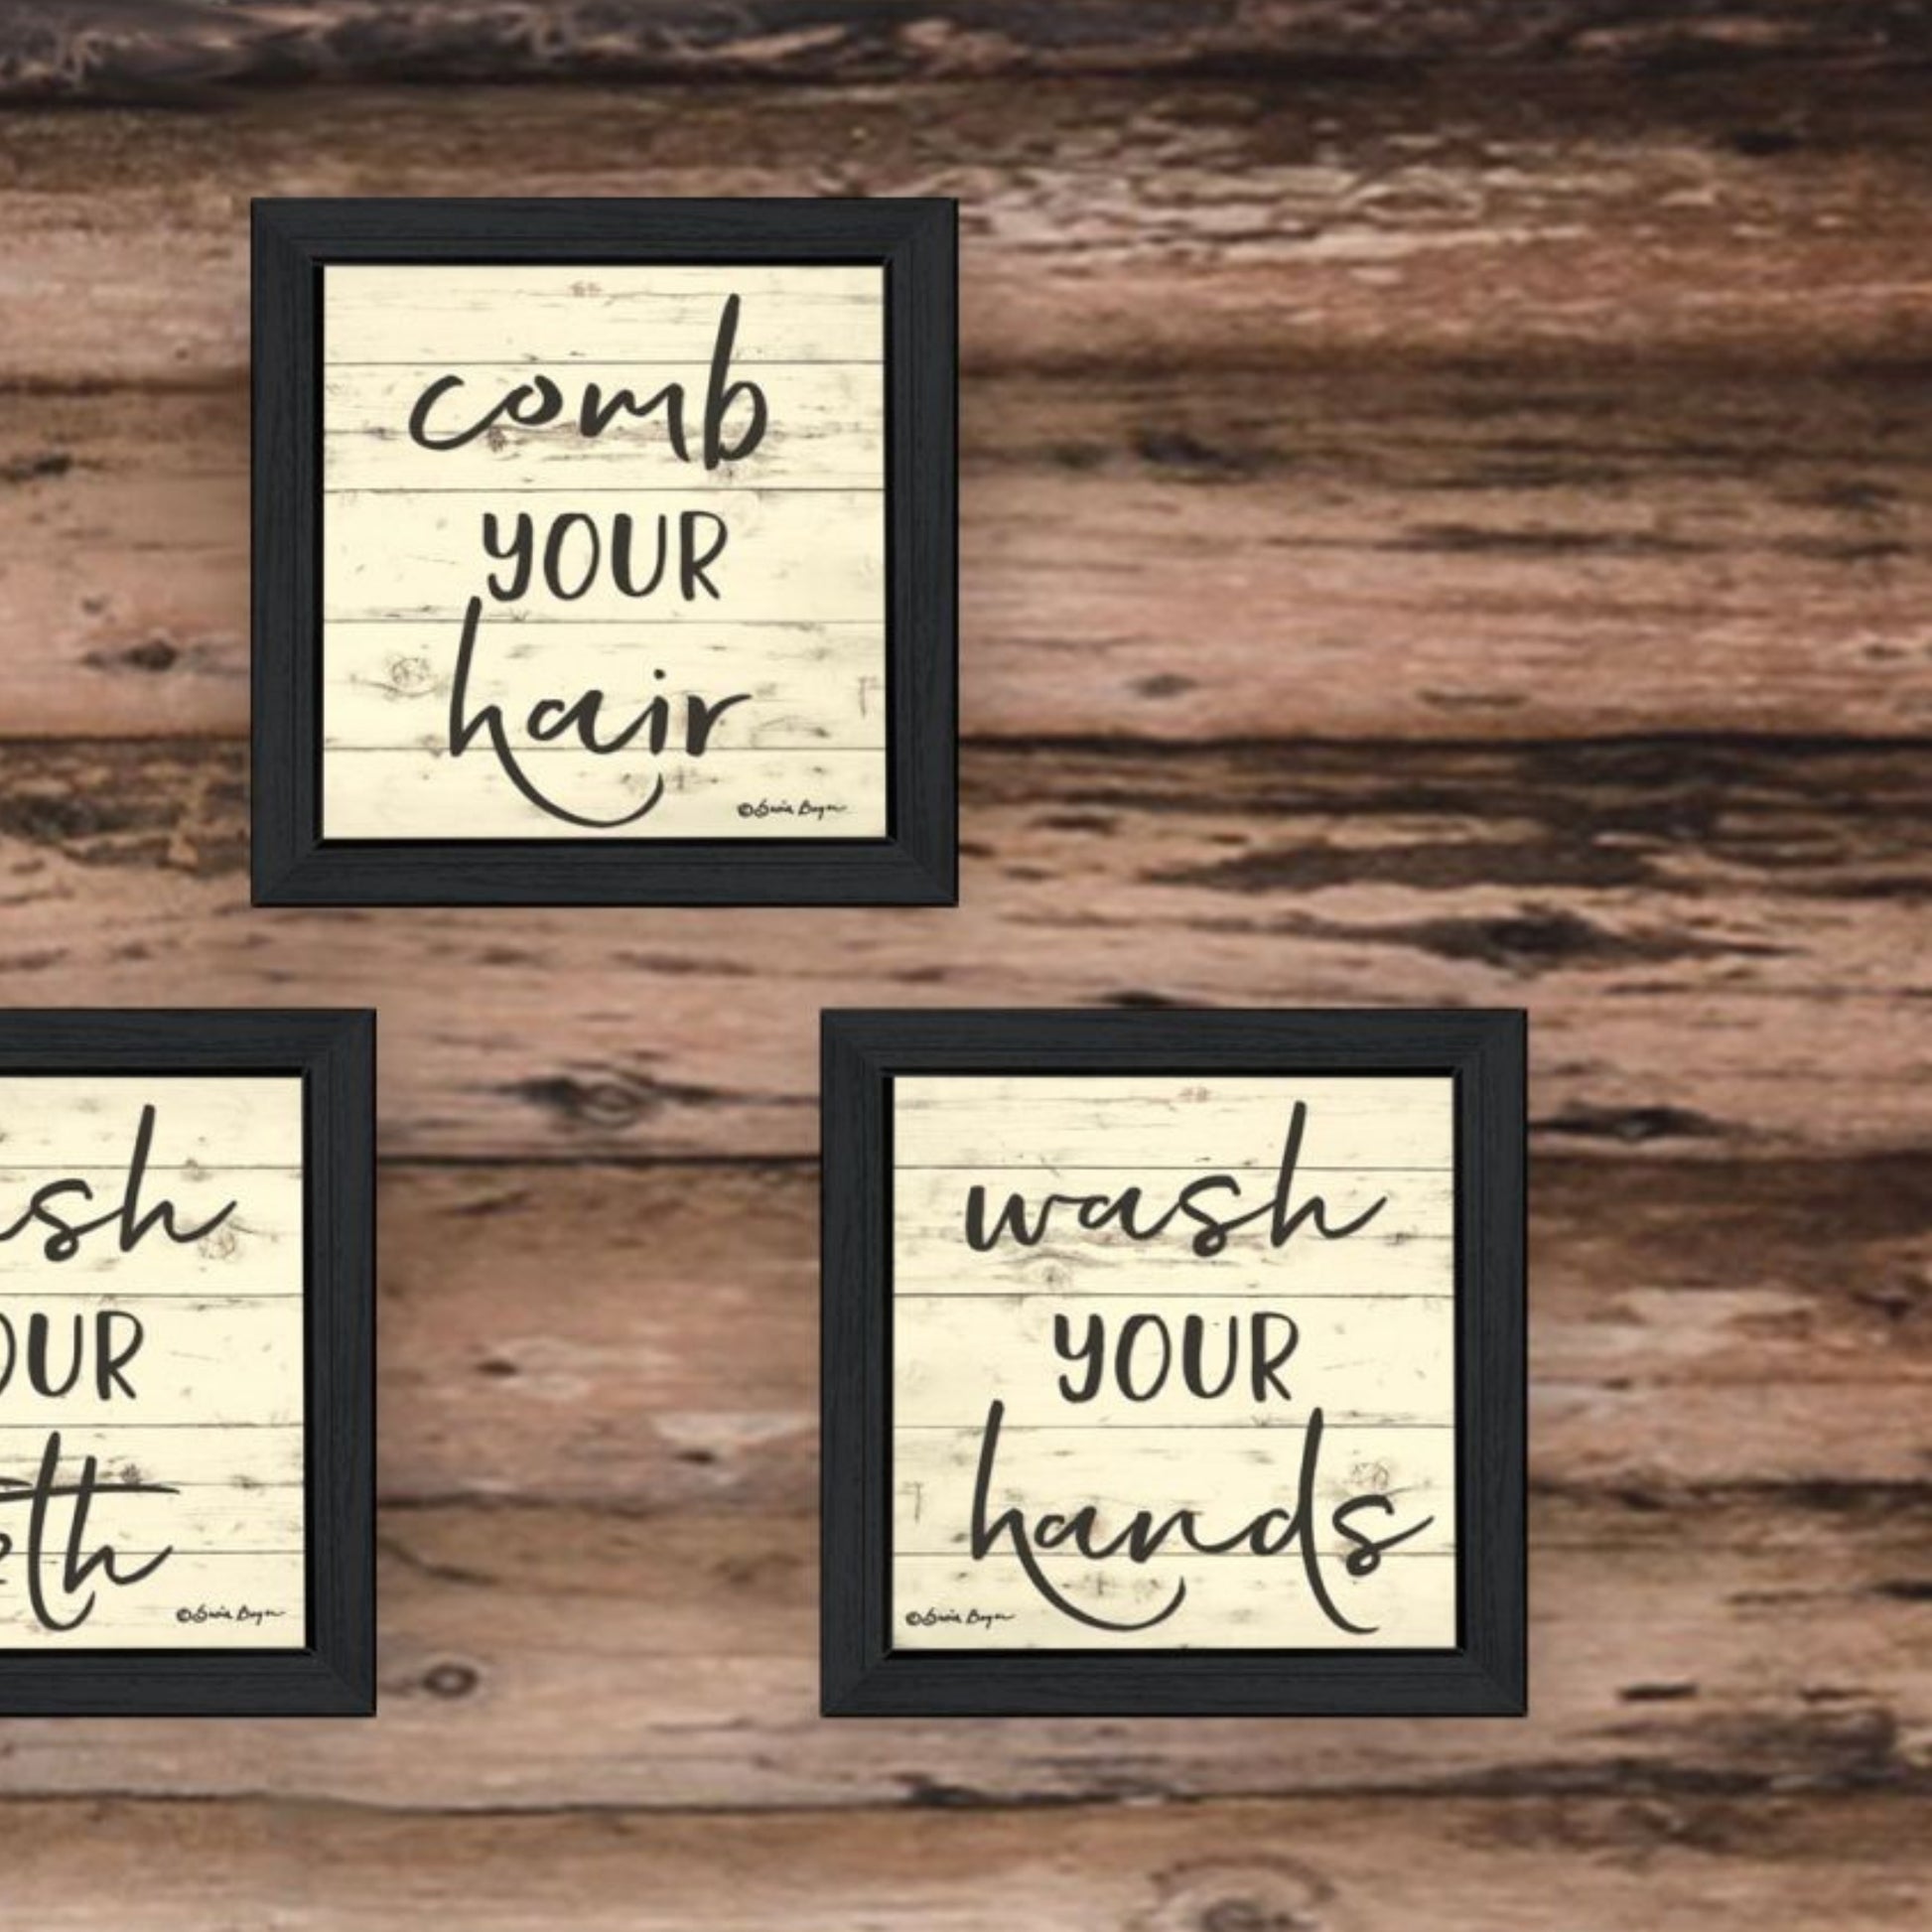 comb
YOUR
hair
©Susie Boyer
sh
OUR
eth
©Susie Boyer
wash
YOUR
hands
©Susie Boyer